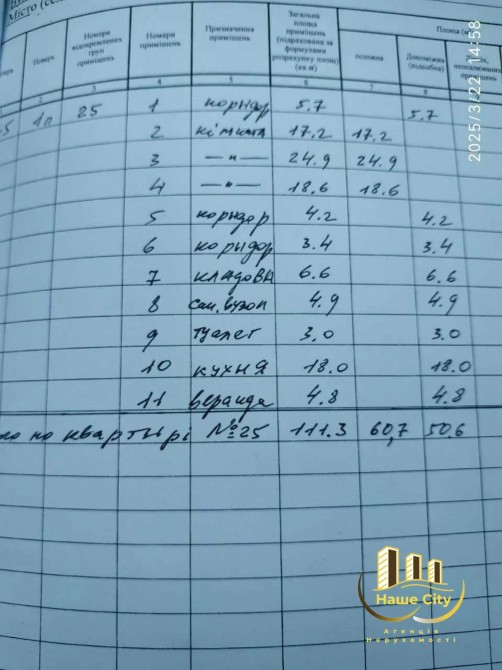 Місто (се
Площа (к
Поверх
Номери відокремлених груп приміщень
Номери приміщень
Призначення приміщень
Загальна площа приміщень (підрахована за формулами розрахунку площ) (кв.м)
основна
Допоміжна (підсобна)
2 3 4 5 6 7 8
1п 25 1 коридор 5,7 5.7
2 кімната 17,2 17,2
3 —"— 24.9 24.9
4 —"— 18,6 18.6
5 коридор 4.2 4.2
6 коридор 3.4 3.4
7 кладова 6.6 6.6
8 сан.вузол 4.9 4.9
9 туалет 3,0 3.0
10 кухня 18.0 18.0
11 веранда 4.8 4.8
по квартирі №25 111.3 60,7 50.6
2025/3/22 14:58
Наше City
Агенція
Нерухомості